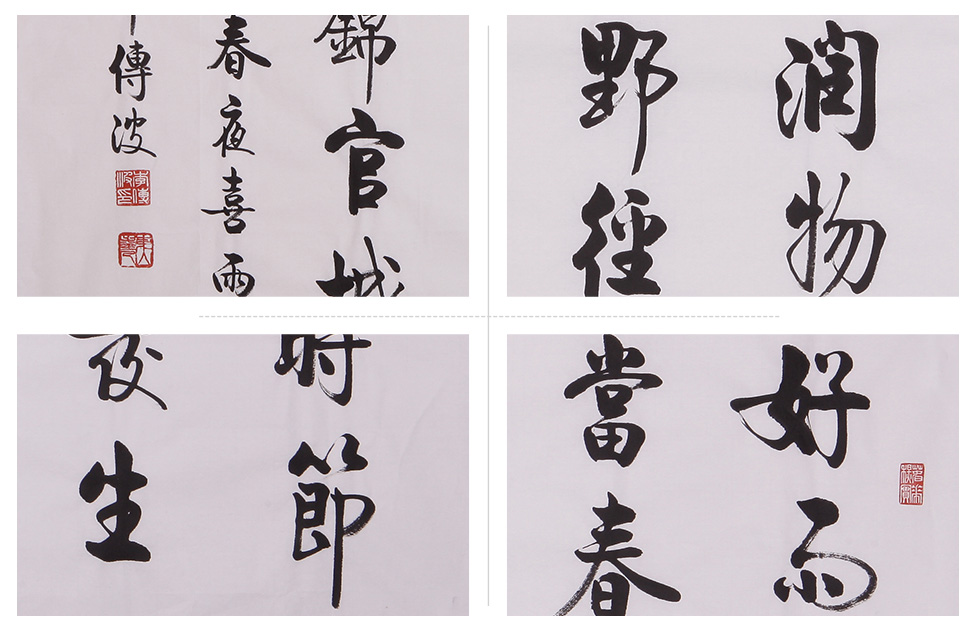 錦官城
春夜喜雨
傳波
李傳波印
潤物
野徑
時節
發生
好雨
當春